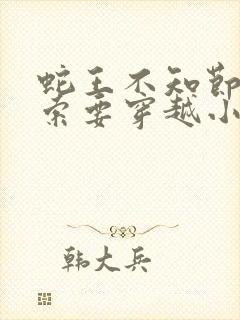 蛇王不知节
索要穿越小
韩大兵